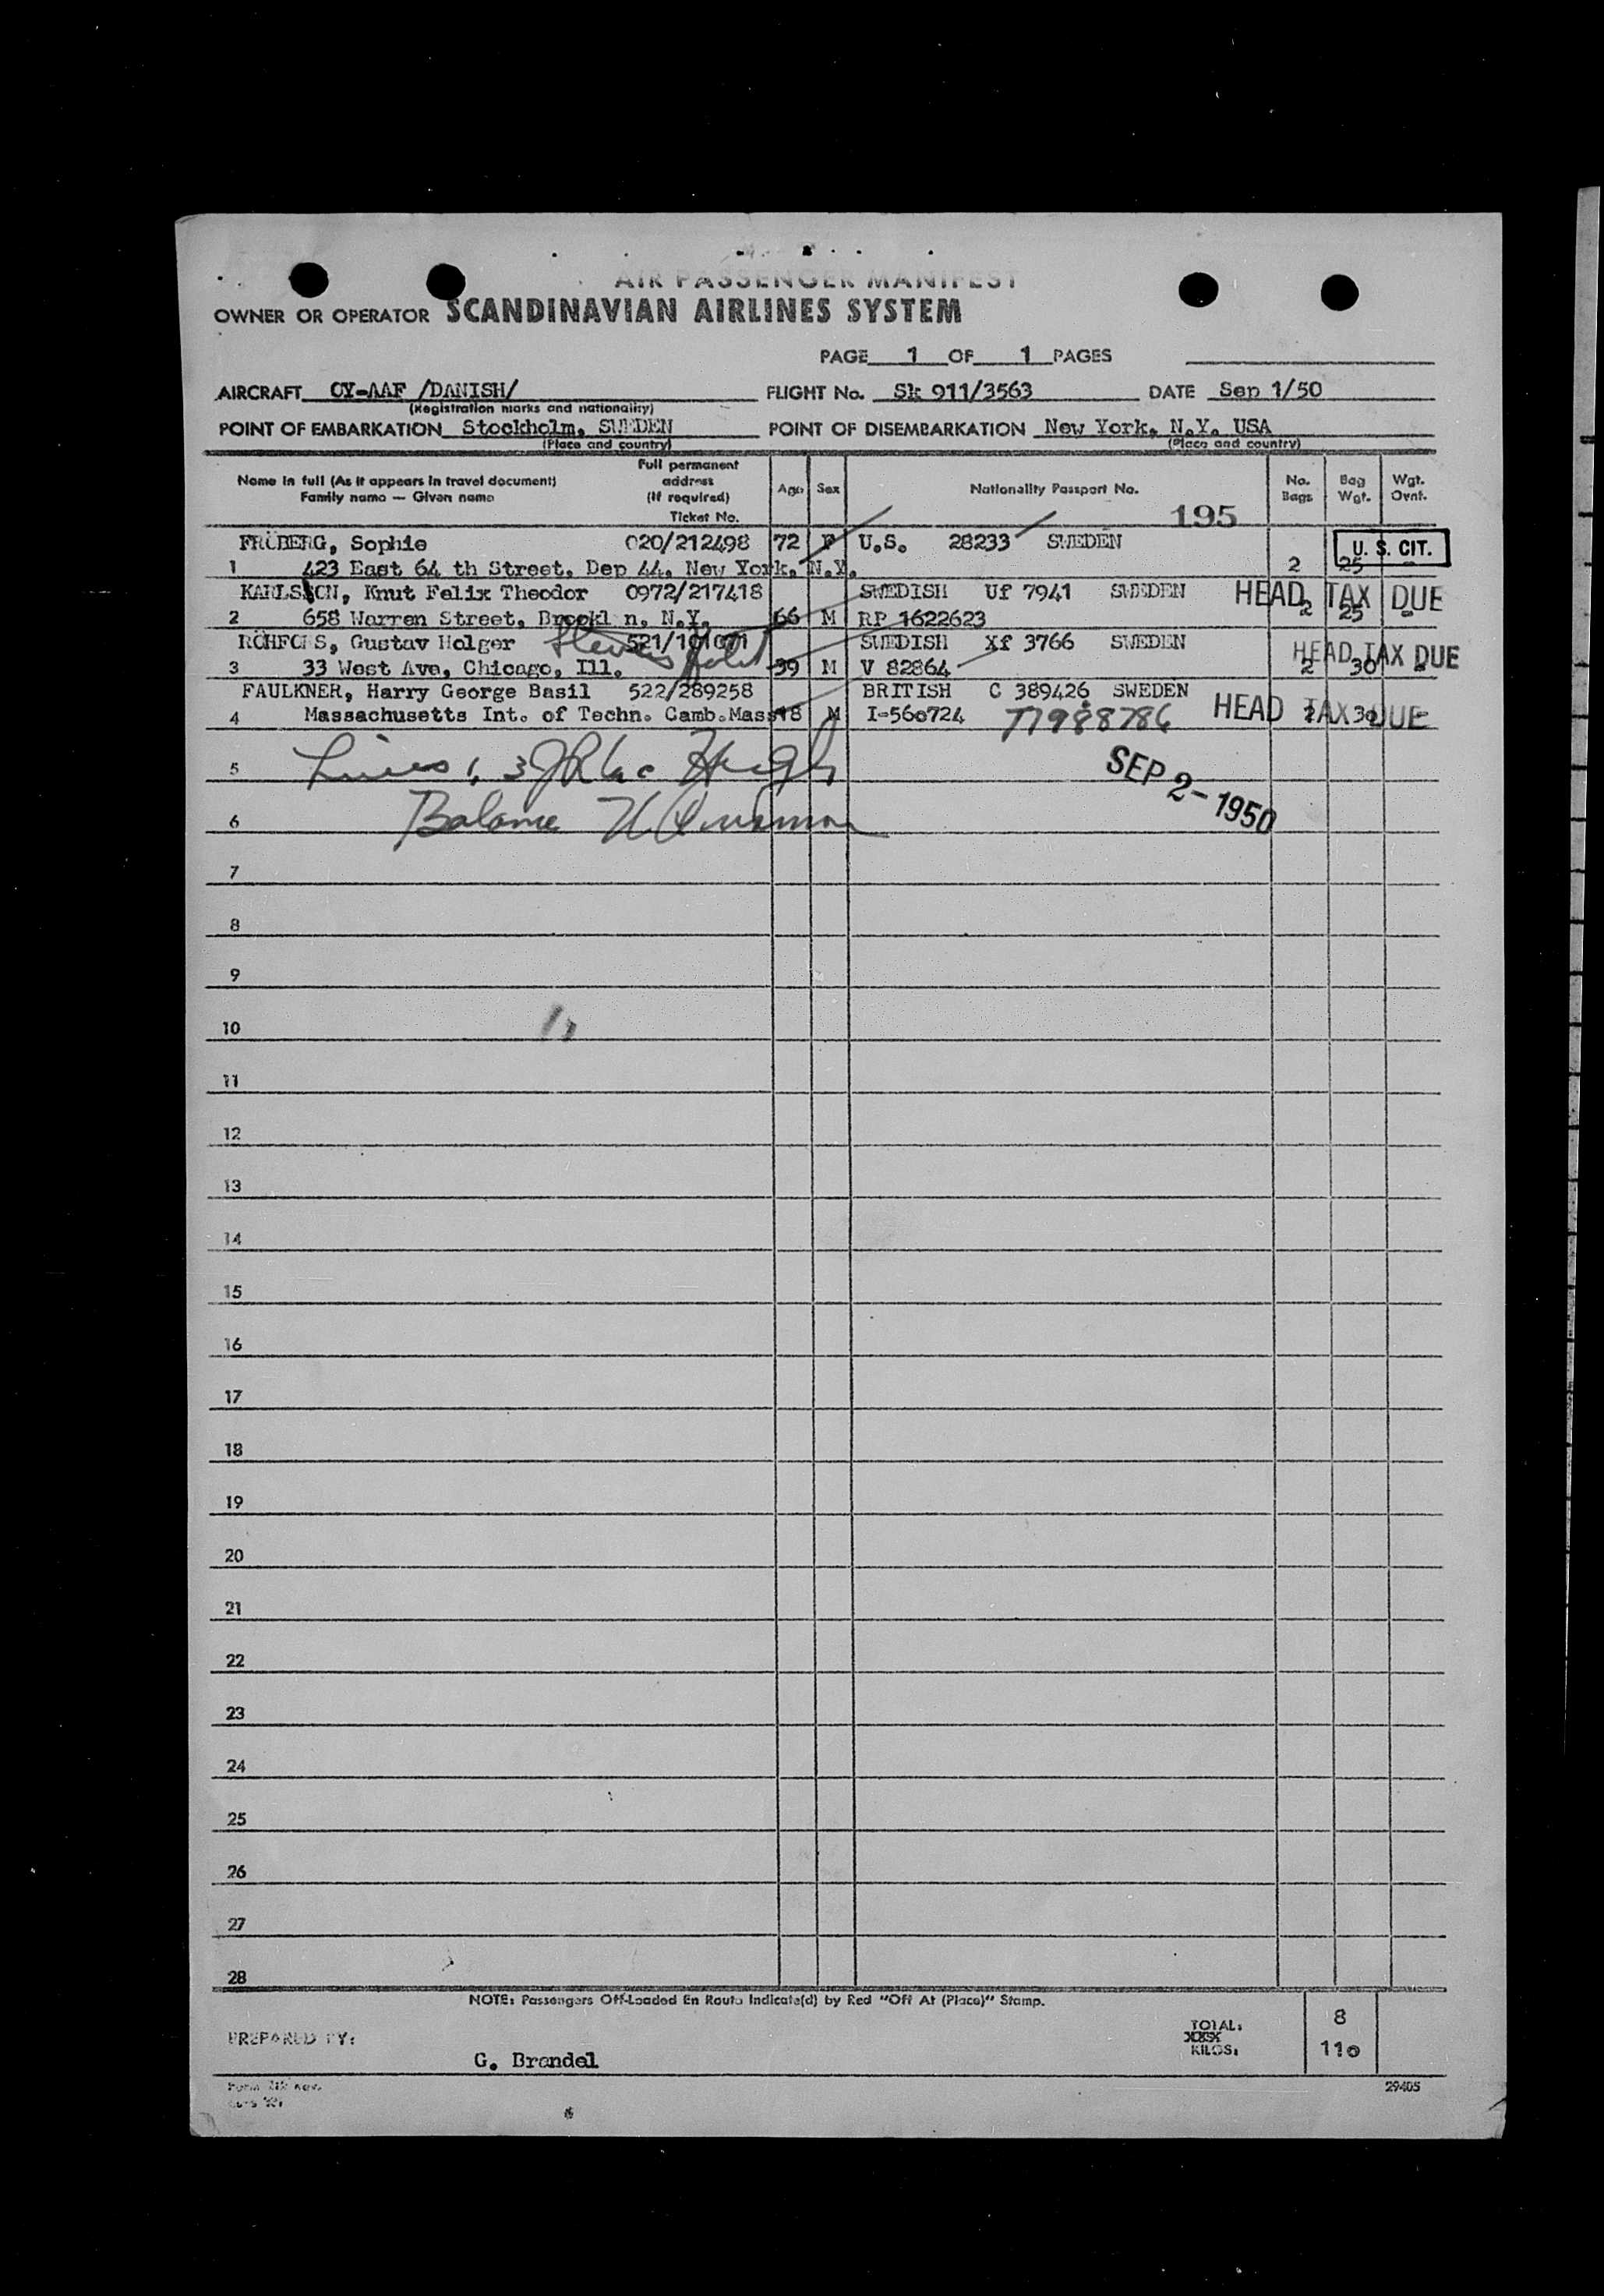 AIR PASSENGER MANIFEST
OWNER OR OPERATOR SCANDINAVIAN AIRLINES SYSTEM
PAGE 1 OF 1 PAGES
AIRCRAFT OY-AAF /DANISH/ FLIGHT No. Sk 911/3563 DATE Sep 1/50
(Registration marks and nationality)
POINT OF EMBARKATION Stockholm, SWEDEN POINT OF DISEMBARKATION New York, N.Y. USA
(Place and country) (Place and country)
Name in full (As it appears in travel document) Family name — Given name Full permanent address (If required) Ticket No. Age Sex Nationality Passport No. No. Bags Bag Wgt. Wgt. Ovnt.
195
FRÖBERG, Sophie 020/212498 72 F U.S. 28233 SWEDEN U. S. CIT.
1 423 East 64 th Street, Dep 44, New York, N.Y. 2 25 -
KARLSSON, Knut Felix Theodor 0972/217418 SWEDISH Uf 7941 SWEDEN HEAD TAX DUE
2 658 Warren Street, Brookl n, N.Y. 66 M RP 1622623 2 25 -
RÖHFORS, Gustav Holger 521/101071 SWEDISH Xf 3766 SWEDEN HEAD TAX DUE
3 33 West Ave, Chicago, Ill. 39 M V 82864 2 30 -
FAULKNER, Harry George Basil 522/289258 BRITISH C 389426 SWEDEN HEAD TAX DUE
4 Massachusetts Int. of Techn. Camb.Mass 18 M I-560724 2 30 -
5 Lines 1, 3
SEP 2-1950
6 Balance
7
8
9
10
11
12
13
14
15
16
17
18
19
20
21
22
23
24
25
26
27
28
NOTE: Passengers Off-Loaded En Route Indicate(d) by Red "Off At (Place)" Stamp.
TOTAL: 8
PREPARED BY: G. Brandel KILOS: 110
29405